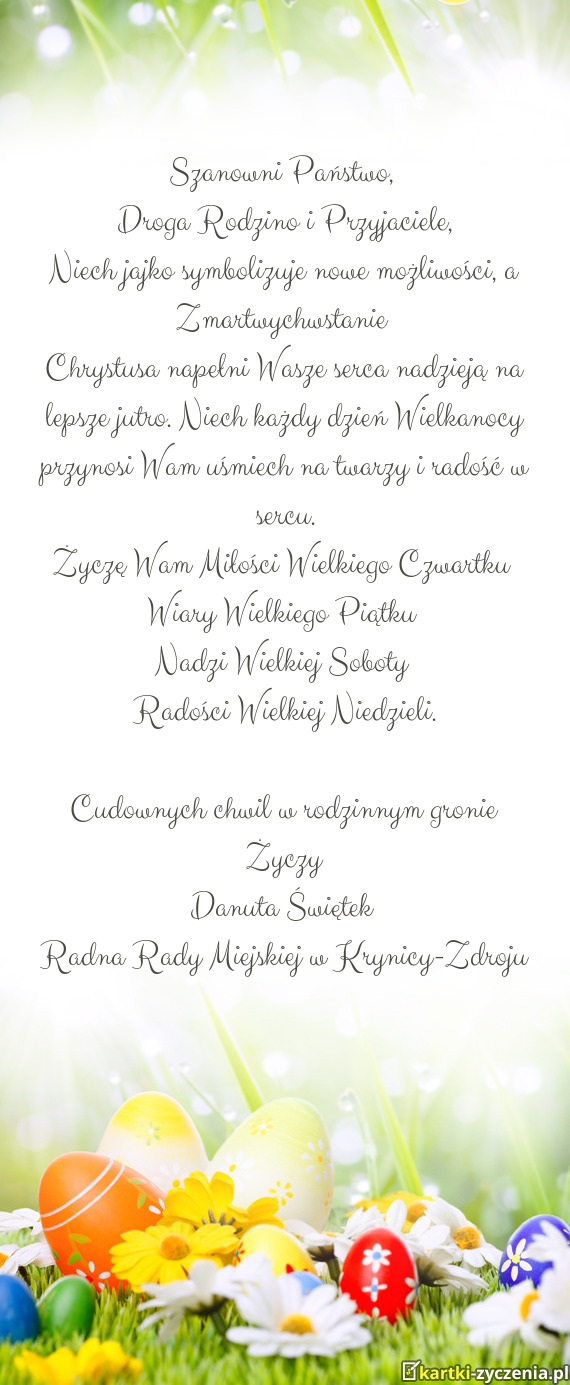 Szanowni Państwo,
Droga Rodzino i Przyjaciele,
Niech jajko symbolizuje nowe możliwości, a
Zmartwychwstanie
Chrystusa napełni Wasze serca nadzieją na
lepsze jutro. Niech każdy dzień Wielkanocy
przynosi Wam uśmiech na twarzy i radość w
sercu.
Życzę Wam Miłości Wielkiego Czwartku
Wiary Wielkiego Piątku
Nadzi Wielkiej Soboty
Radości Wielkiej Niedzieli.
Cudownych chwil w rodzinnym gronie
Życzy
Danuta Świętek
Radna Rady Miejskiej w Krynicy-Zdroju
kartki-zyczenia.pl